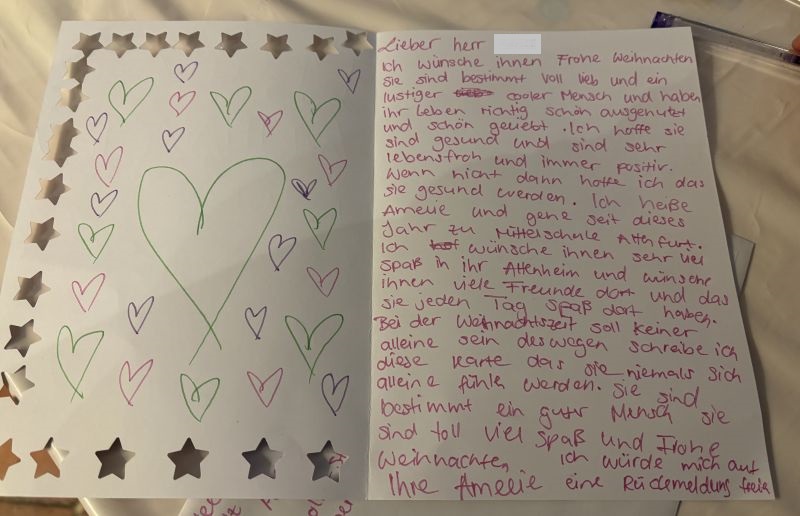 Lieber herr
Ich wünsche ihnen Frohe Weihnachten
sie sind bestimmt voll lieb und ein
lustiger cooler Mensch und haben
ihr Leben richtig schön ausgenutzt
und schön geliebt. Ich hoffe sie
sind gesund und sind sehr
lebensfroh und immer positiv.
Wenn nicht dann hoffe ich das
sie gesund werden. Ich heiße
Amelie und gehe seit dieses
Jahr zu Mittelschule Altenfurt.
Ich wünsche ihnen sehr viel
spaß in ihr Altenheim und wünsche
ihnen viele Freunde dort und das
sie jeden Tag spaß dort haben.
Bei der Weihnachtszeit soll keiner
alleine sein deswegen schreibe ich
diese Karte das sie niemals sich
alleine fühle werden. Sie sind
bestimmt ein guter Mensch sie
sind toll viel spaß und Frohe
Weihnachten, Ich würde mich auf
Ihre Amelie eine Rückmeldung freun